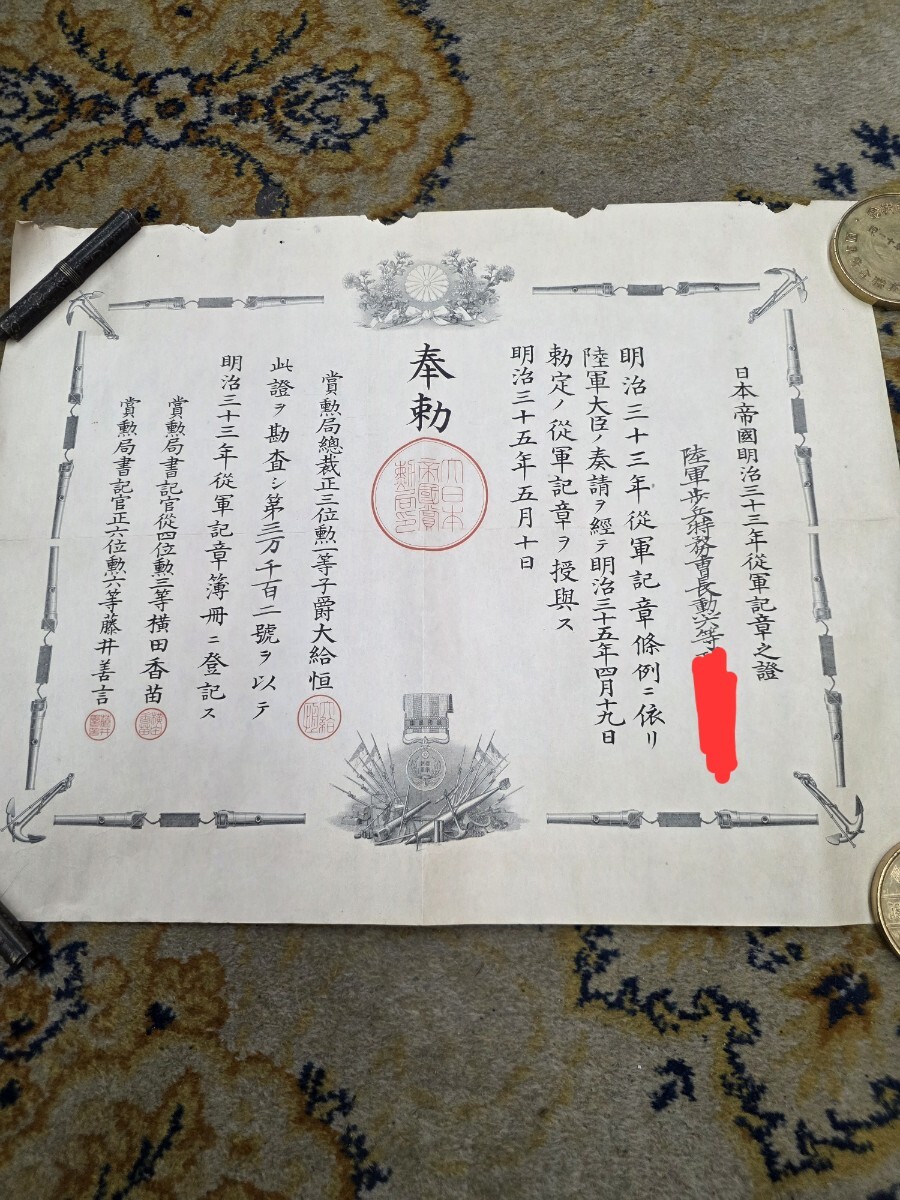 日本帝國明治三十三年從軍記章之證
陸軍歩兵特務曹長勳六等
明治三十三年從軍記章條例ニ依リ
陸軍大臣ノ奏請ヲ經テ明治三十五年四月十九日
勅定ノ從軍記章ヲ授與ス
明治三十五年五月十日
奉勅
大日本
帝國賞
勲局印
賞勲局總裁正三位勲一等子爵大給恒
此證ヲ勘査シ第三万千百二號ヲ以テ
明治三十三年從軍記章簿册ニ登記ス
賞勲局書記官從四位勲三等橫田香苗
賞勲局書記官正六位勲六等藤井善言